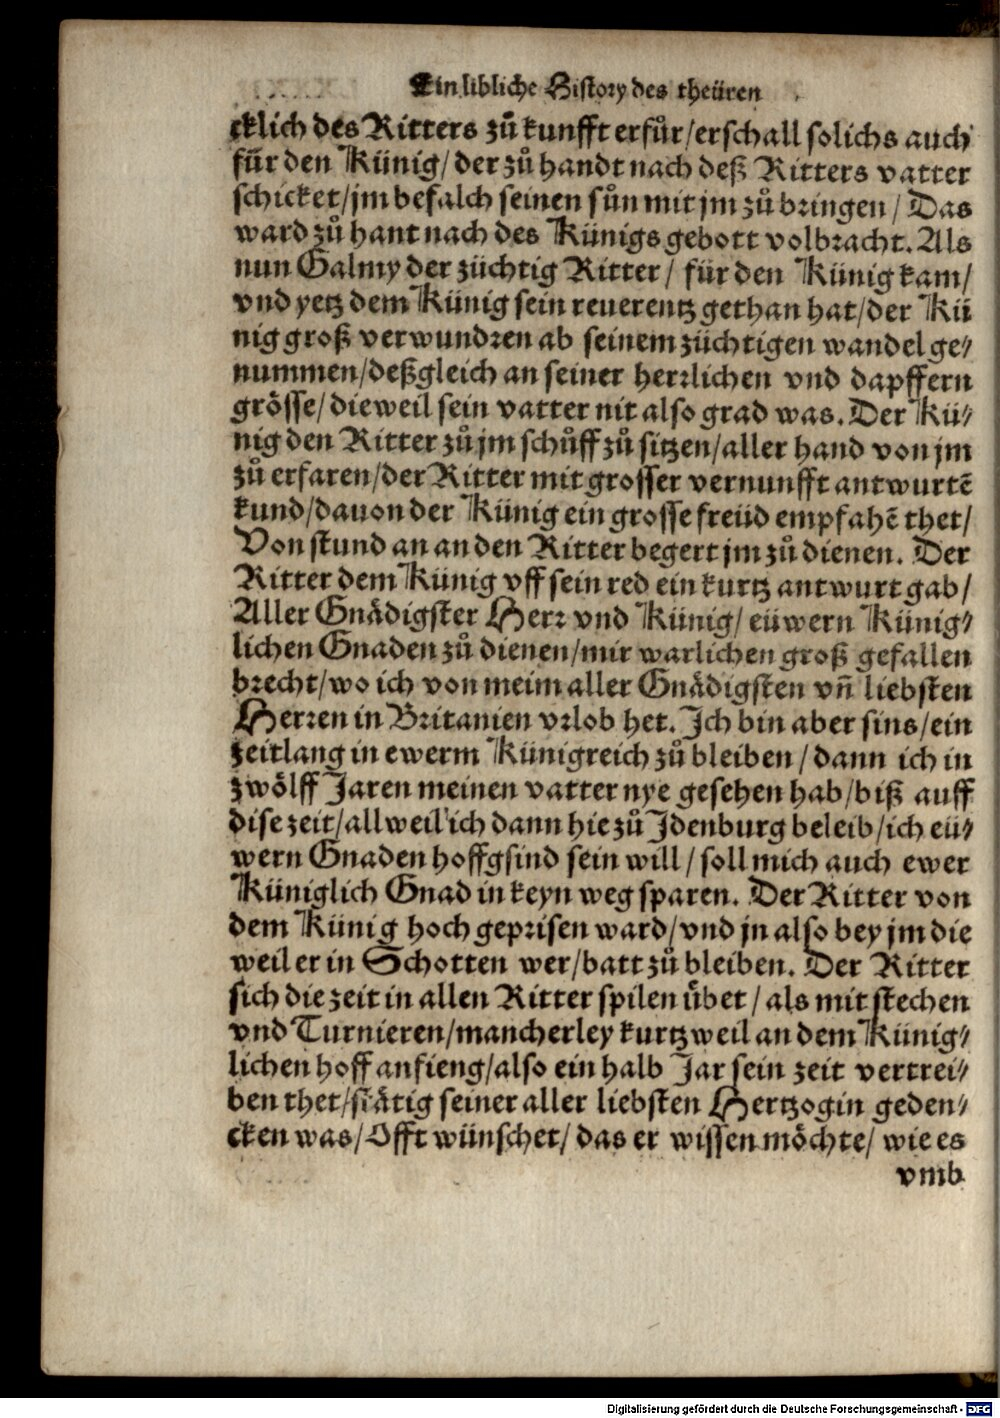 Ein libliche History des theüren
cklich des Ritters zů kunfft erfůr/erschall solichs auch
für den Künig/der zů handt nach deß Ritters vatter
schicket/jm befalch seinen sůn mit jm zů bringen/ Das
ward zů hant nach des Künigs gebott volbracht. Als
nun Galmy der züchtig Ritter/ für den Künig kam/
vnd yetz dem Künig sein reuerentz gethan hat/der Kü
nig groß verwundren ab seinem züchtigen wandel ge⸗
nummen/deßgleich an seiner herrlichen vnd dapffern
grösse/dieweil sein vatter nit also grad was. Der Kü⸗
nig den Ritter zů jm schůff zů sitzen/aller hand von jm
zů erfaren/der Ritter mit grosser vernunfft antwurtẽ
kund/dauon der Künig ein grosse freüd empfahẽ thet/
Von stund an an den Ritter begert jm zů dienen. Der
Ritter dem Künig vff sein red ein kurtz antwurt gab/
Aller Gnädigster Herr vnd Künig/ eüwern Künig⸗
lichen Gnaden zů dienen/mir warlichen groß gefallen
brecht/wo ich von meim aller Gnädigsten vñ liebsten
Herren in Britanien vrlob het. Ich bin aber sins/ein
zeitlang in ewerm Künigreich zů bleiben/dann ich in
zwölff Jaren meinen vatter nye gesehen hab/biß auff
dise zeit/allweil ich dann hie zů Idenburg beleib/ich eü⸗
wern Gnaden hoffgsind sein will/ soll mich auch ewer
Küniglich Gnad in keyn weg sparen. Der Ritter von
dem Künig hoch geprisen ward/vnd jn also bey jm die
weil er in Schotten wer/batt zů bleiben. Der Ritter
sich die zeit in allen Ritter spilen übet/als mit stechen
vnd Turnieren/mancherley kurtzweil an dem Künig⸗
lichen hoff anfieng/also ein halb Jar sein zeit vertrei⸗
ben thet/stätig seiner aller liebsten Hertzogin geden⸗
cken was/Offt wünschet/das er wissen möchte/ wie es
vmb
Digitalisierung gefördert durch die Deutsche Forschungsgemeinschaft - DFG